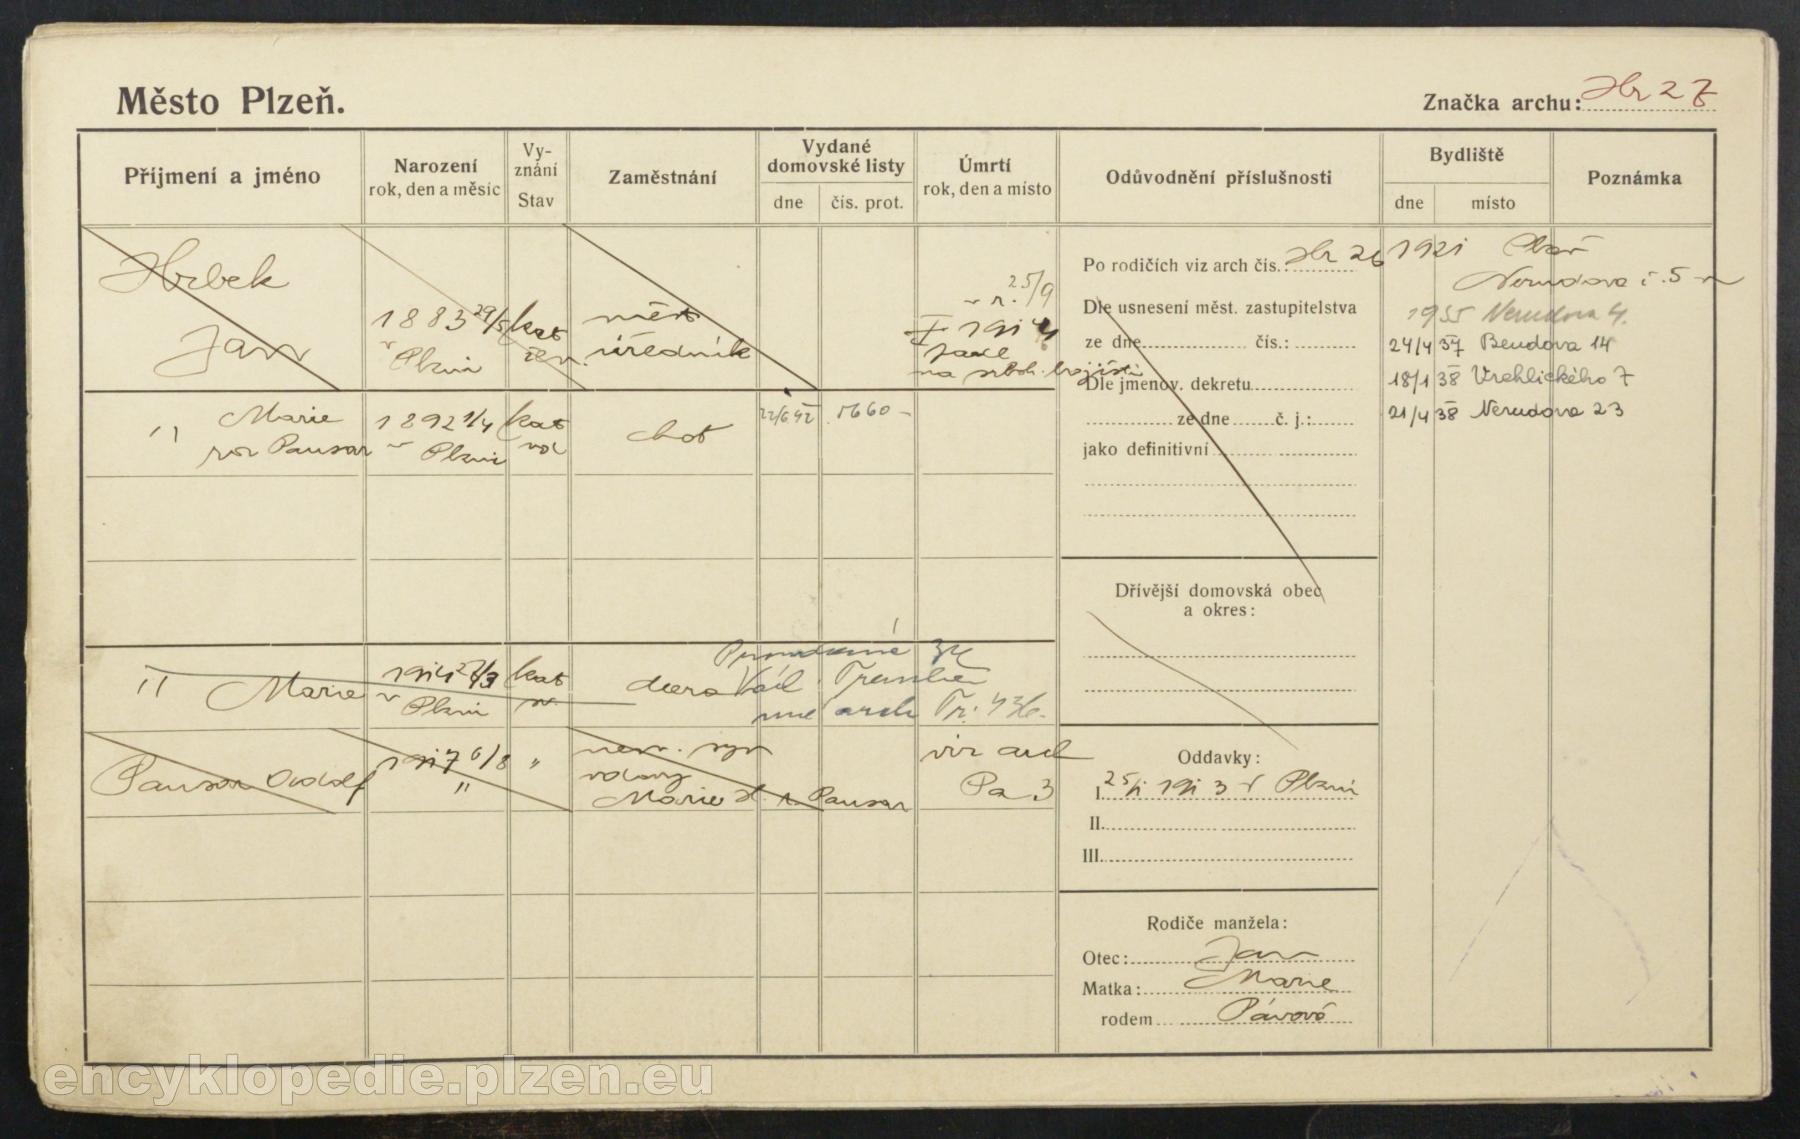 Město Plzeň.
Značka archu: Hr 27
Příjmení a jméno
Narození
rok, den a měsíc
Vy-
znání
Stav
Zaměstnání
Vydané
domovské listy
dne
čís. prot.
Úmrtí
rok, den a místo
Odůvodnění příslušnosti
Bydliště
dne
místo
Poznámka
Hrbek
Jan
1883 29/5
v Plzni
kat
žen.
měst
úředník
v r. 25/9
1914
padl
na srbsk. bojišti
" Marie
roz Pausar
1892 1/4
v Plzni
kat
vd
choť
22/6 42
5660
" Marie
1914 27/3
v Plzni
kat
sv.
dcera
Provdaná
Václ.
arch Tr. 436.
Pausar Rudolf
1917 6/8
"
"
nem. syn
vdovy
Marie H. r. Pausar
viz arch
Pa 3
Po rodičích viz arch čís.: Hr 26
Dle usnesení měst. zastupitelstva
ze dne čís.:
Dle jmenov. dekretu
ze dne č. j.:
jako definitivní
Dřívější domovská obec
a okres:
Oddavky:
I. 25/1 1913 v Plzni
II.
III.
Rodiče manžela:
Otec: Jan
Matka: Marie
rodem Pávová
1921 Plzeň
Nerudova č. 5
1935 Nerudova 4.
24/4 37 Bendova 14
18/1 38 Vrchlického 7
21/4 38 Nerudova 23
encyklopedie.plzen.eu